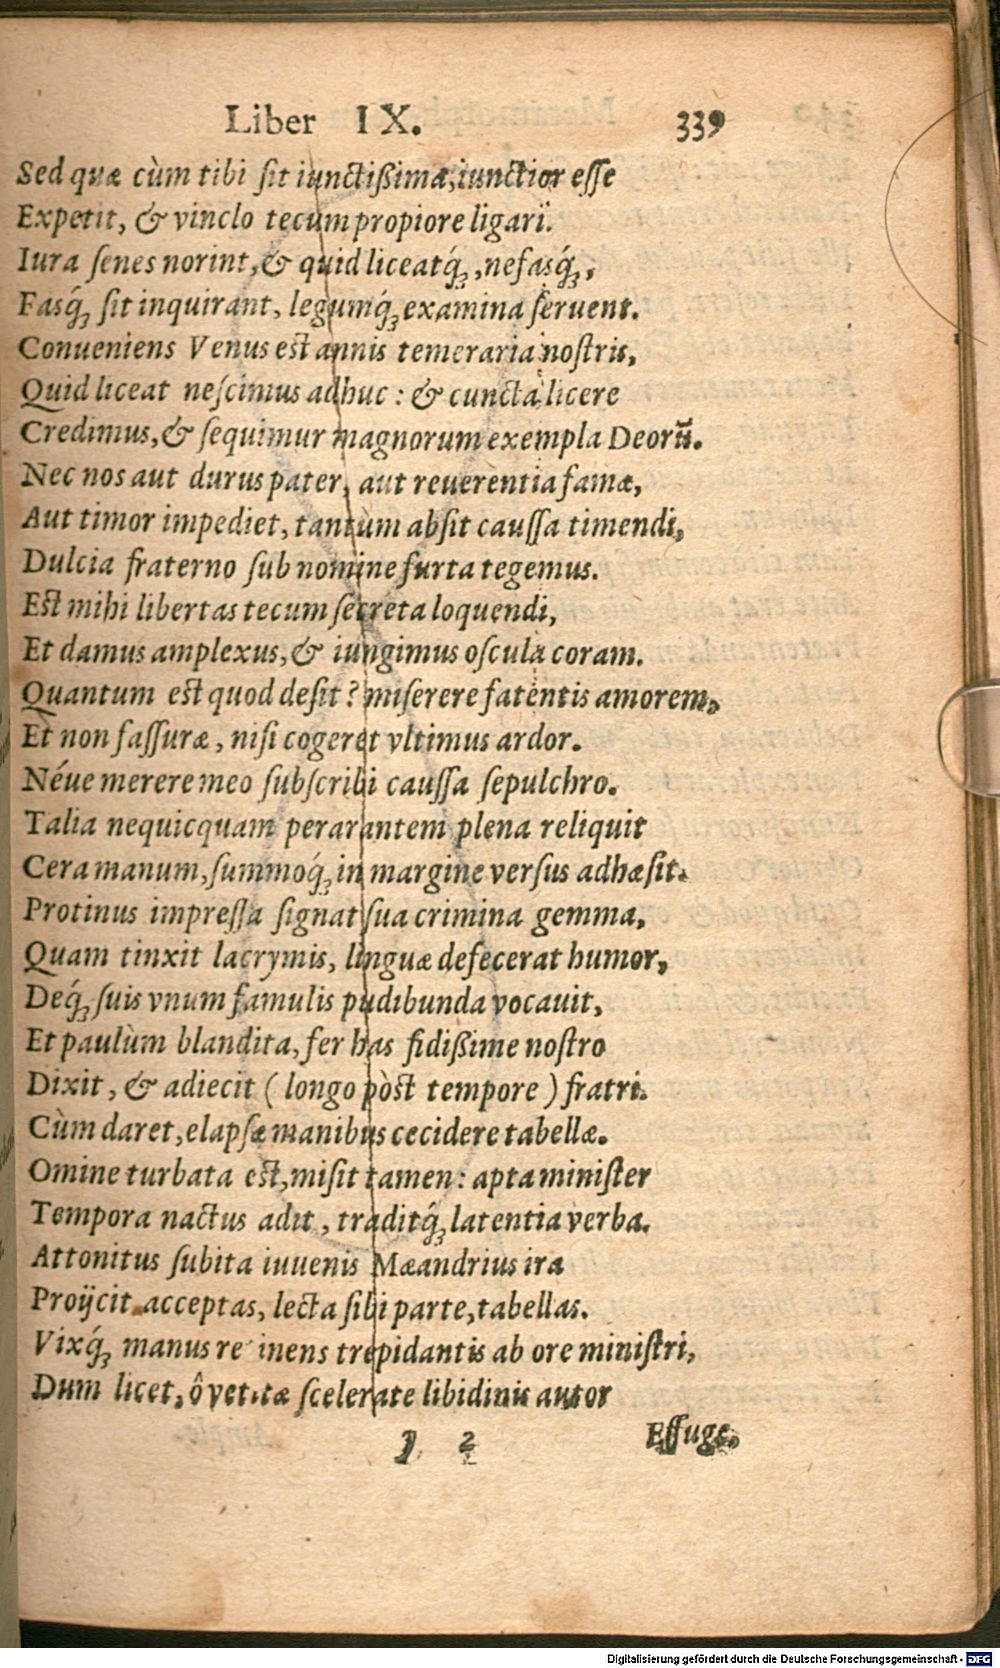 Liber IX. 339
Sed quæ cùm tibi sit iunctißima, iunctior esse
Expetit, & vinclo tecum propiore ligari.
Iura senes norint, & quid liceatq́;, nefasq́;,
Fasq́; sit inquirant, legumq́; examina seruent.
Conueniens Venus est annis temeraria nostris,
Quid liceat nescimus adhuc: & cuncta licere
Credimus, & sequimur magnorum exempla Deorũ.
Nec nos aut durus pater, aut reuerentia famæ,
Aut timor impediet, tantùm absit caussa timendi,
Dulcia fraterno sub nomine furta tegemus.
Est mihi libertas tecum secreta loquendi,
Et damus amplexus, & iungimus oscula coram.
Quantum est quod desit? miserere fatentis amorem,
Et non fassuræ, nisi cogeret vltimus ardor.
Néue merere meo subscribi caussa sepulchro.
Talia nequicquam perarantem plena reliquit
Cera manum, summoq́; in margine versus adhæsit.
Protinus impressa signat sua crimina gemma,
Quam tinxit lacrymis, linguæ defecerat humor,
Deq́; suis vnum famulis pudibunda vocauit,
Et paulùm blandita, fer has fidißime nostro
Dixit, & adiecit (longo pòst tempore) fratri.
Cùm daret, elapsæ manibus cecidere tabellæ.
Omine turbata est, misit tamen: apta minister
Tempora nactus adit, traditq́; latentia verba.
Attonitus subita iuuenis Mæandrius ira
Proijcit acceptas, lecta sibi parte, tabellas.
Vixq́; manus re inens trepidantis ab ore ministri,
Dum licet, ô vetitæ scelerate libidinis autor
2 Effuge,
Digitalisierung gefördert durch die Deutsche Forschungsgemeinschaft - DFG